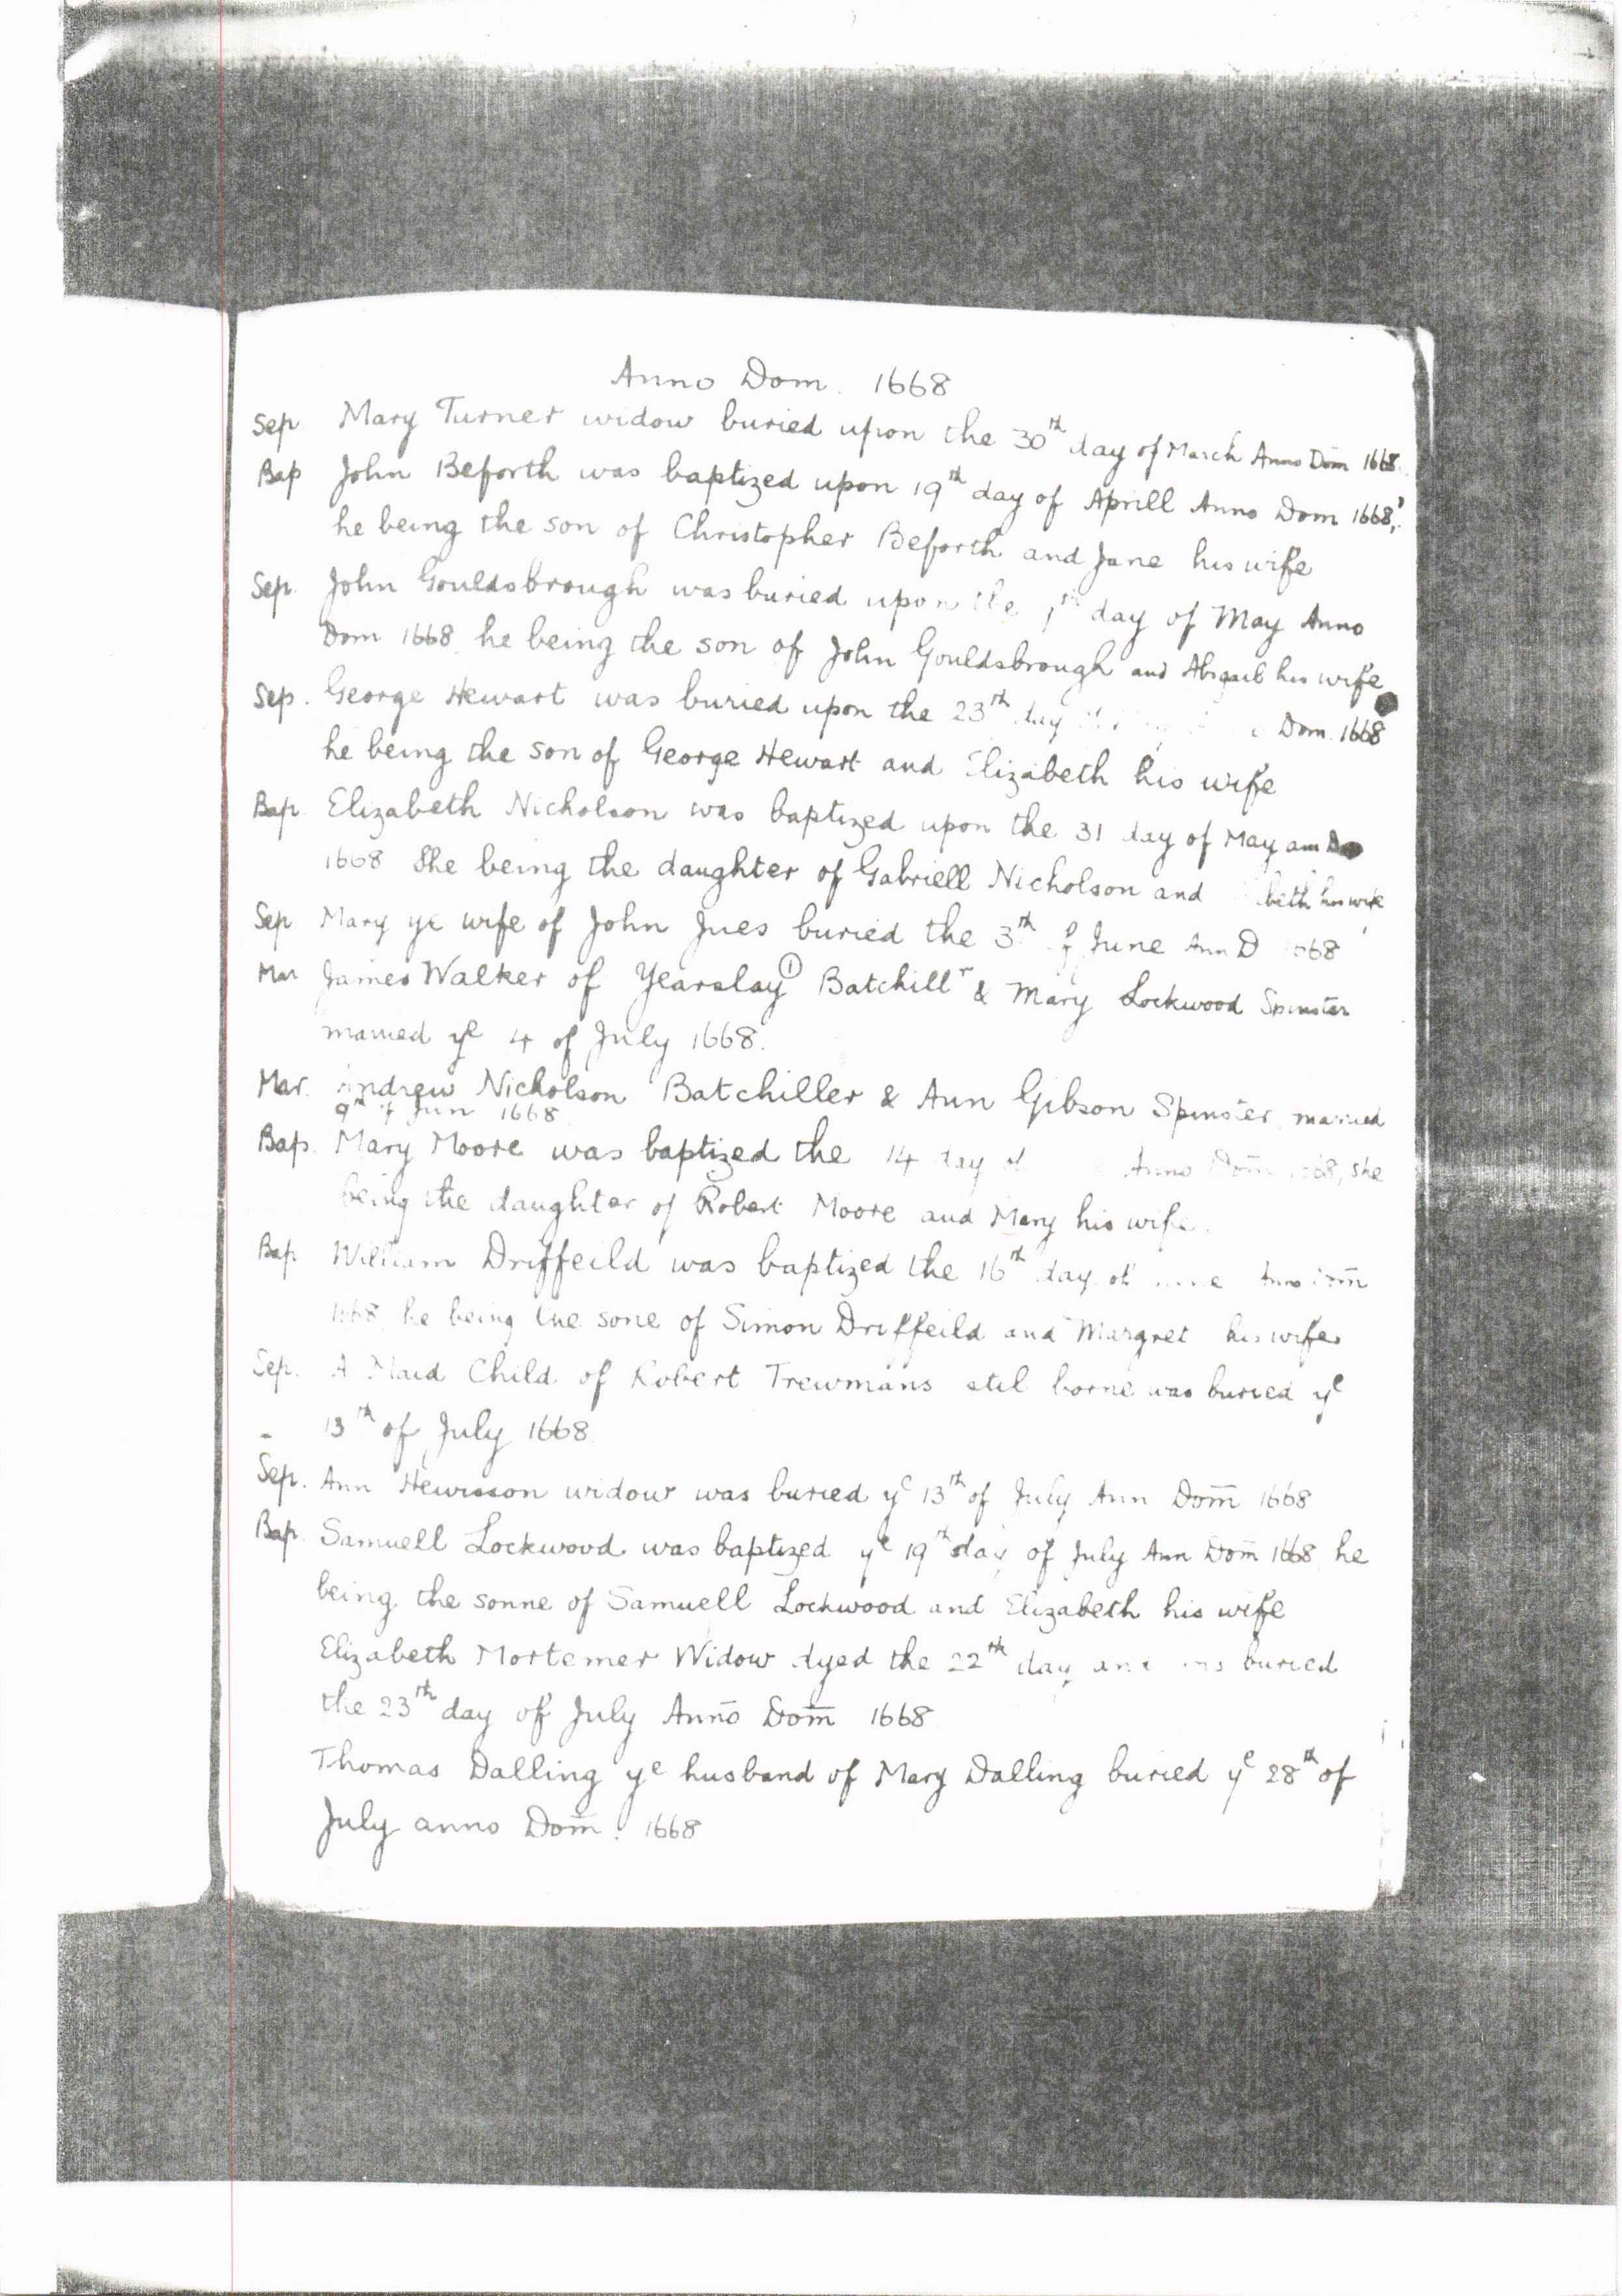 Anno Dom. 1668
Sep. Mary Turner widow buried upon the 30th day of March Anno Dom 1668.
Bap John Beforth was baptized upon 19th day of Aprill Anno Dom 1668,
he being the son of Christopher Beforth and Jane his wife
Sep. John Gouldsbrough was buried upon the day of May Anno
Dom 1668 he being the son of John Gouldsbrough and Abigail his wife
Sep. George Hewart was buried upon the 23th day Dom. 1668
he being the son of George Hewart and Elizabeth his wife
Bap. Elizabeth Nicholson was baptized upon the 31 day of May
1668 She being the daughter of Gabriell Nicholson and beth his wife
Sep Mary ye wife of John Jues buried the 3th of June Ann D 1668
Mar James Walker of Yearslay ① Batchillr & Mary Lockwood Spinster
married ye 4 of July 1668.
Mar. Andrew Nicholson Batchiller & Ann Gibson Spinster married
9th of Jun 1668
Bap. Mary Moore was baptized the 14 day of Anno Dom 1668, she
being the daughter of Robert Moore and Mary his wife.
Bap William Driffeild was baptized the 16th day of Anno Dom̄
1668, he being the sone of Simon Driffeild and Margret his wife
Sep. A Maid Child of Robert Trewmans stil borne was buried ye
13th of July 1668.
Sep. Ann Hewisson widow was buried ye 13th of July Ann Dom̄ 1668
Bap. Samuell Lockwood was baptized ye 19th day of July Ann Dom̄ 1668, he
being the sonne of Samuell Lockwood and Elizabeth his wife
Elizabeth Mortemer Widow dyed the 22th day and was buried
the 23th day of July Anno̅ Dom̄ 1668
Thomas Dalling ye husband of Mary Dalling buried ye 28th of
July anno Dom̄. 1668